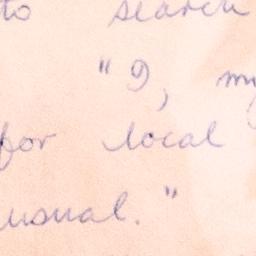 to search
"I, my
for local
usual."